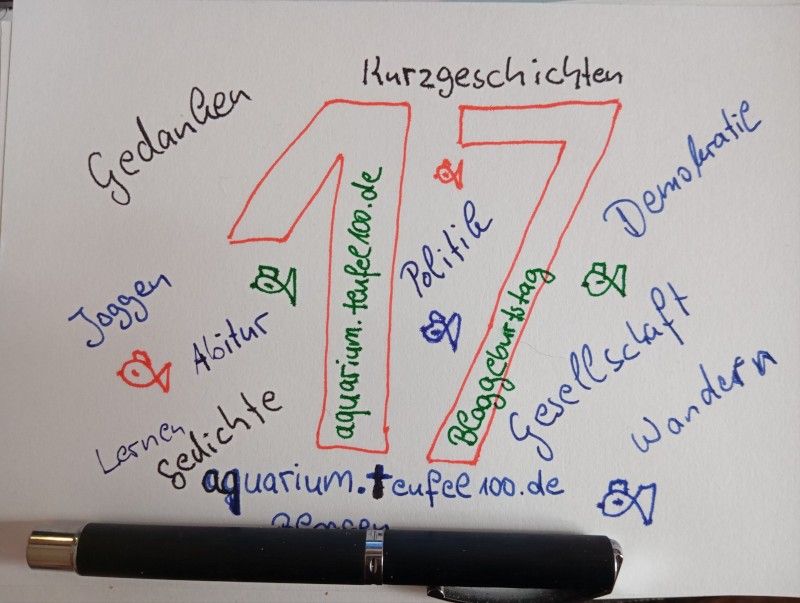 Kurzgeschichten
Gedanken
17
aquarium.teufel100.de
Politik
Demokratie
Joggen
Abitur
Bloggeburtstag
Gesellschaft
Wandern
Lernen
Gedichte
aquarium.teufel100.de